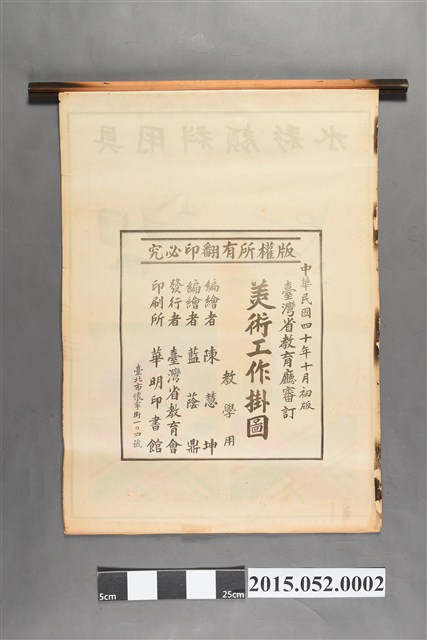 水彩顏料用具
版權所有翻印必究
中華民國四十年十月初版
臺灣省教育廳審訂
美術工作掛圖
教學用
編繪者 陳慧坤
編繪者 藍蔭鼎
發行者 臺灣省教育會
印刷所 華明印書館
臺北市懷寧街一〇四號
5cm
25cm
2015.052.0002